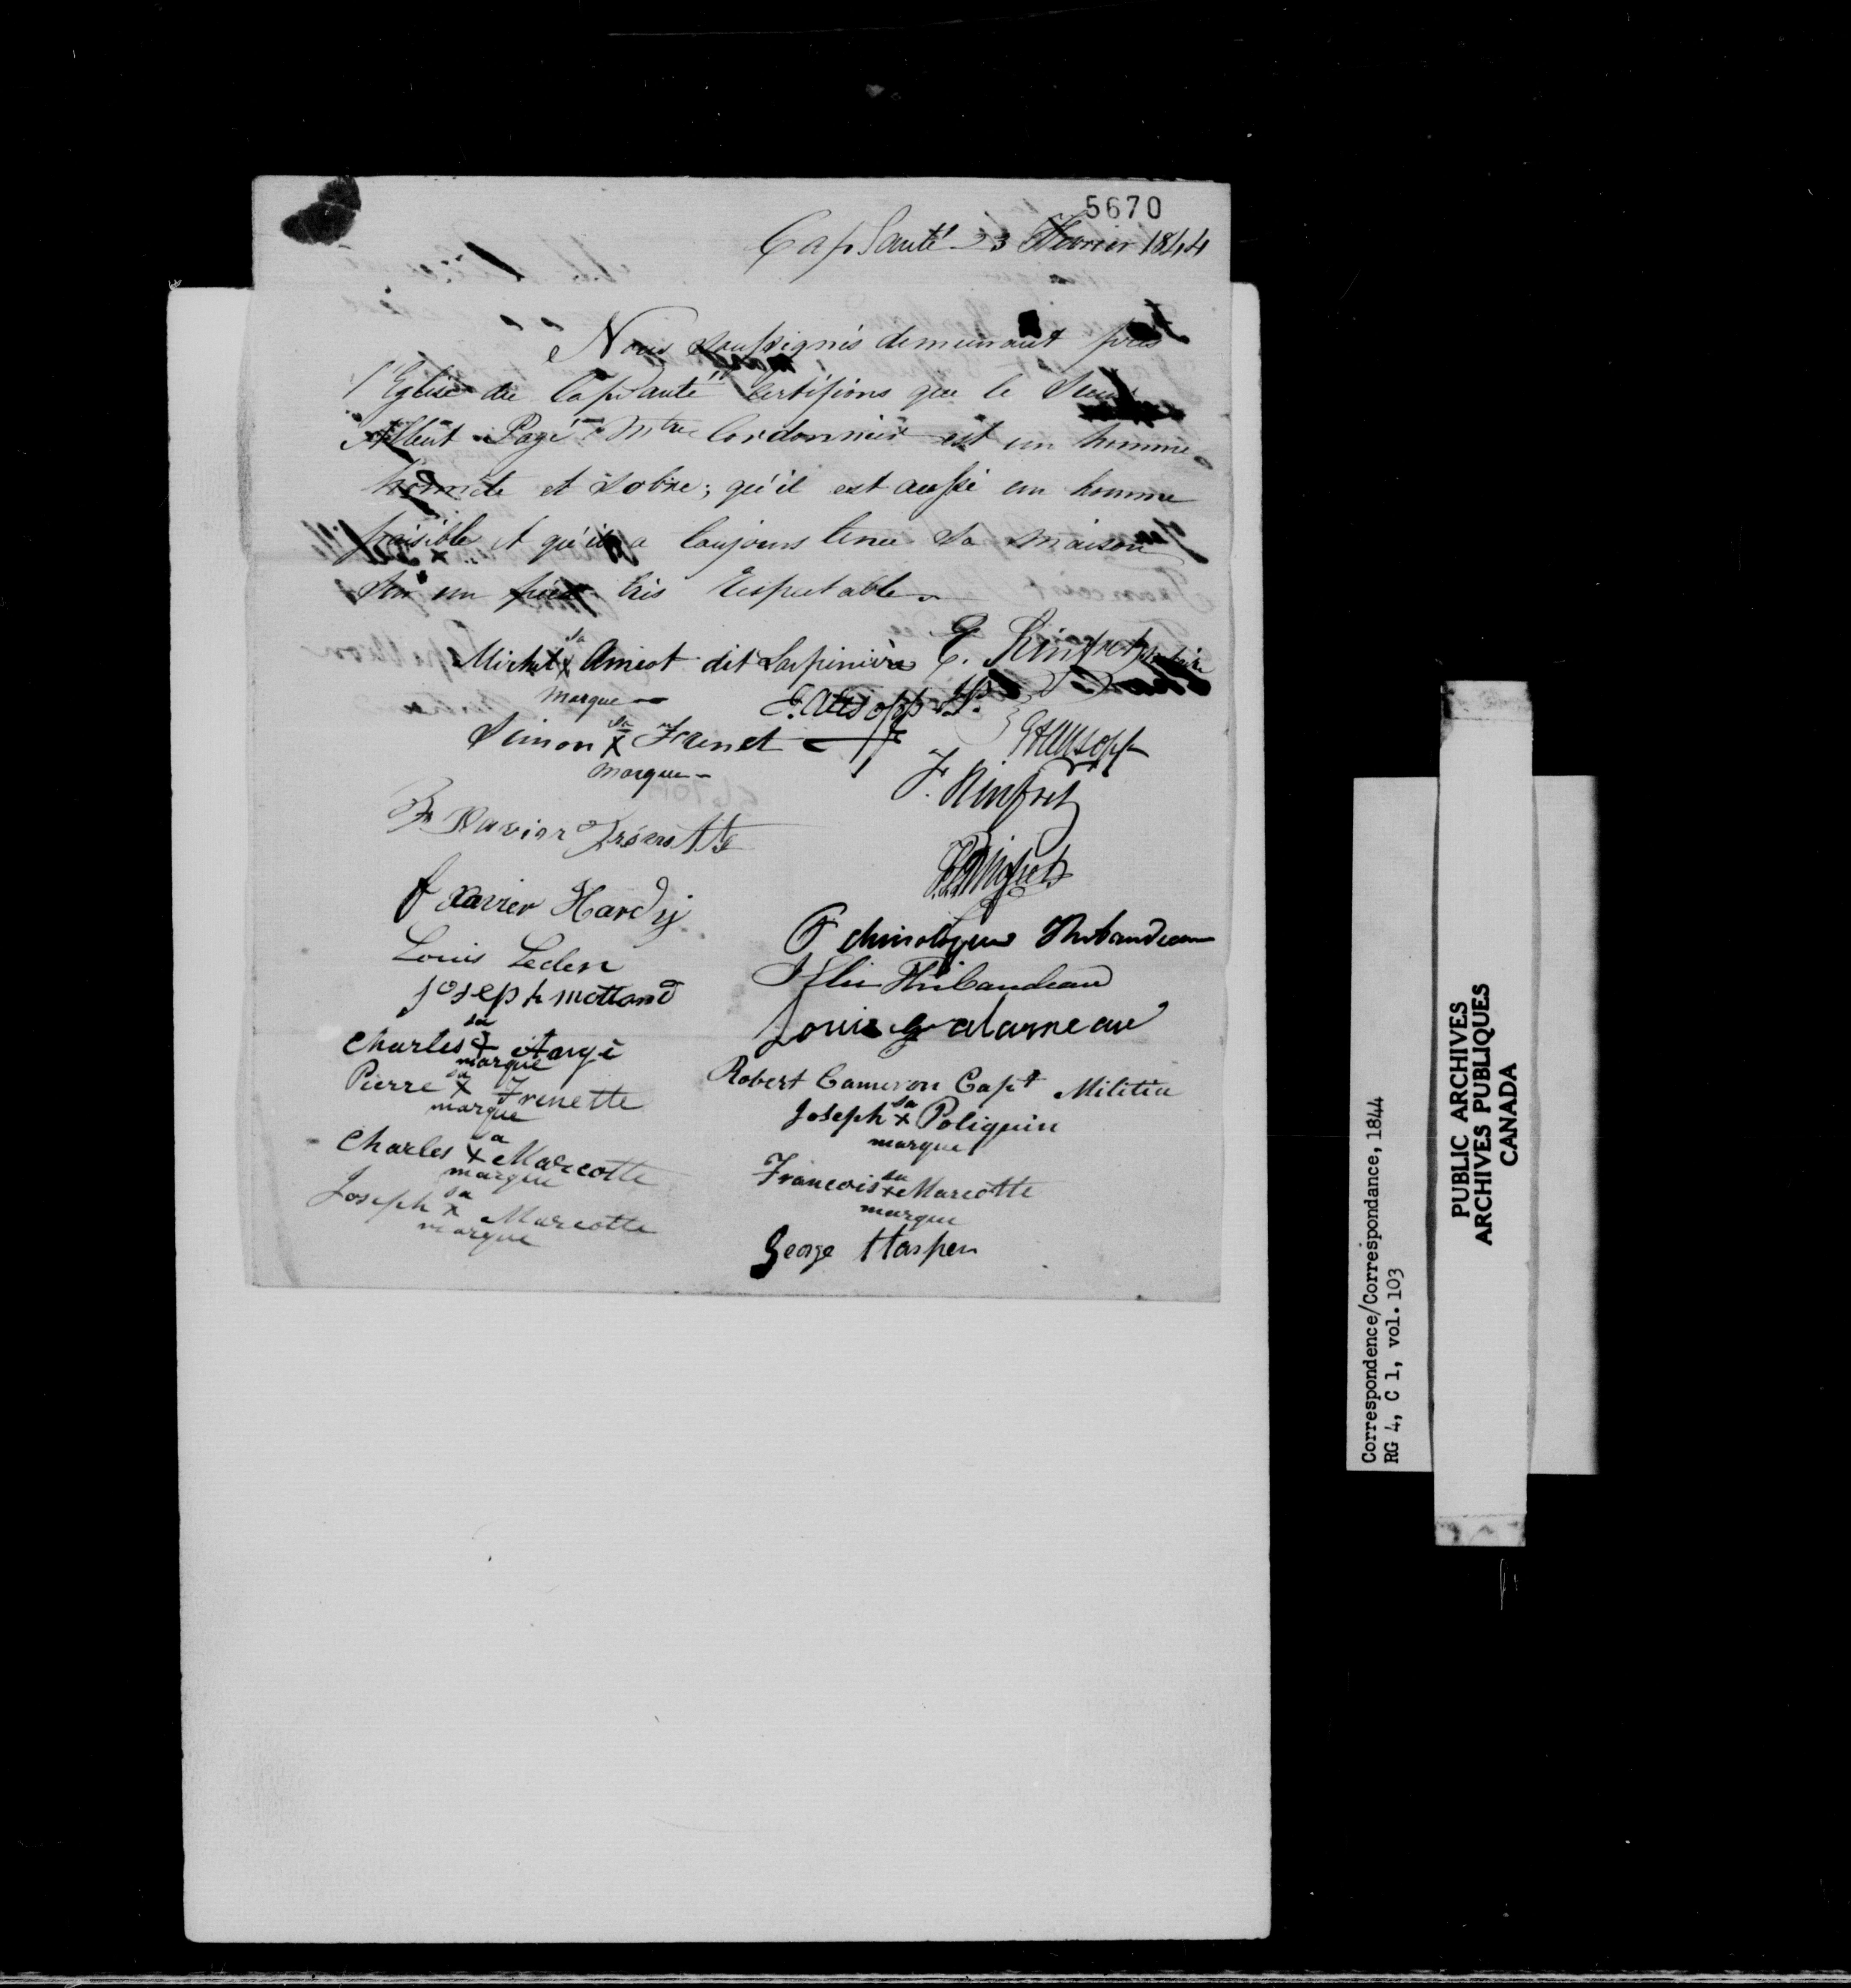 5670
Cap Santé 23 Fevrier 1844
Nous soussignés demeurant près
l'Eglise du Cap Santé certifions que le Sieur
Page Mtre Cordonnier est un homme
honnête et sobre; qu'il est aussi un homme
paisible et qu'il a toujours tenu sa maison
sur un pied très respectable
Michel sa x marque Amiot dit Larpinière
E. Rinfret
E. Allsopp J.P.
Simon sa x marque Frenet
G Allsopp
F. Rinfret
Fr Xavier Frénette
f xavier Hardy
Thibaudeau
Louis Leclerc
Thibaudeau
Joseph mottard
Louis galarneau
Charles sa x marque
Robert Cameron Capt Militia
Pierre sa x marque Frenette
Joseph sa x marque Poliquin
Charles sa x marque Marcotte
Francois sa x marque Marcotte
Joseph sa x marque Marcotte
George Harper
Correspondence/Correspondance, 1844
RG 4, C 1, vol. 103
PUBLIC ARCHIVES
ARCHIVES PUBLIQUES
CANADA